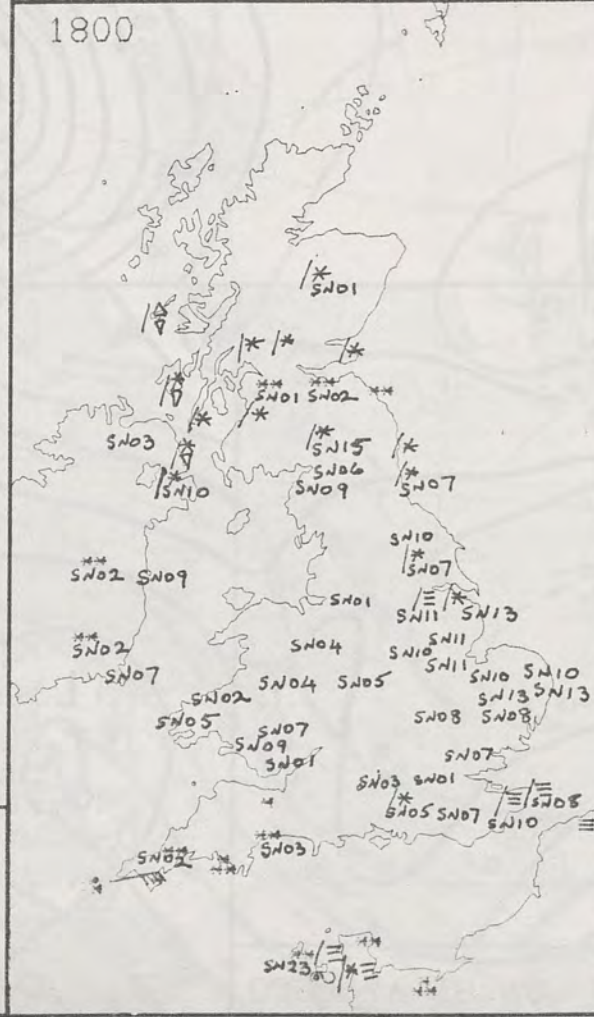 1800
SN01
SN01 SN02
SN03
SN15
SN06
SN09
SN07
SN10
SN10
SN07
SN02 SN09
SN01
SN11
SN13
SN02
SN07
SN04
SN10
SN11
SN11
SN04 SN05
SN10
SN10
SN13
SN13
SN02
SN05
SN08 SN08
SN07
SN09
SN01
SN07
SN03 SN01
SN05 SN07
SN10
SN08
SN03
SN23